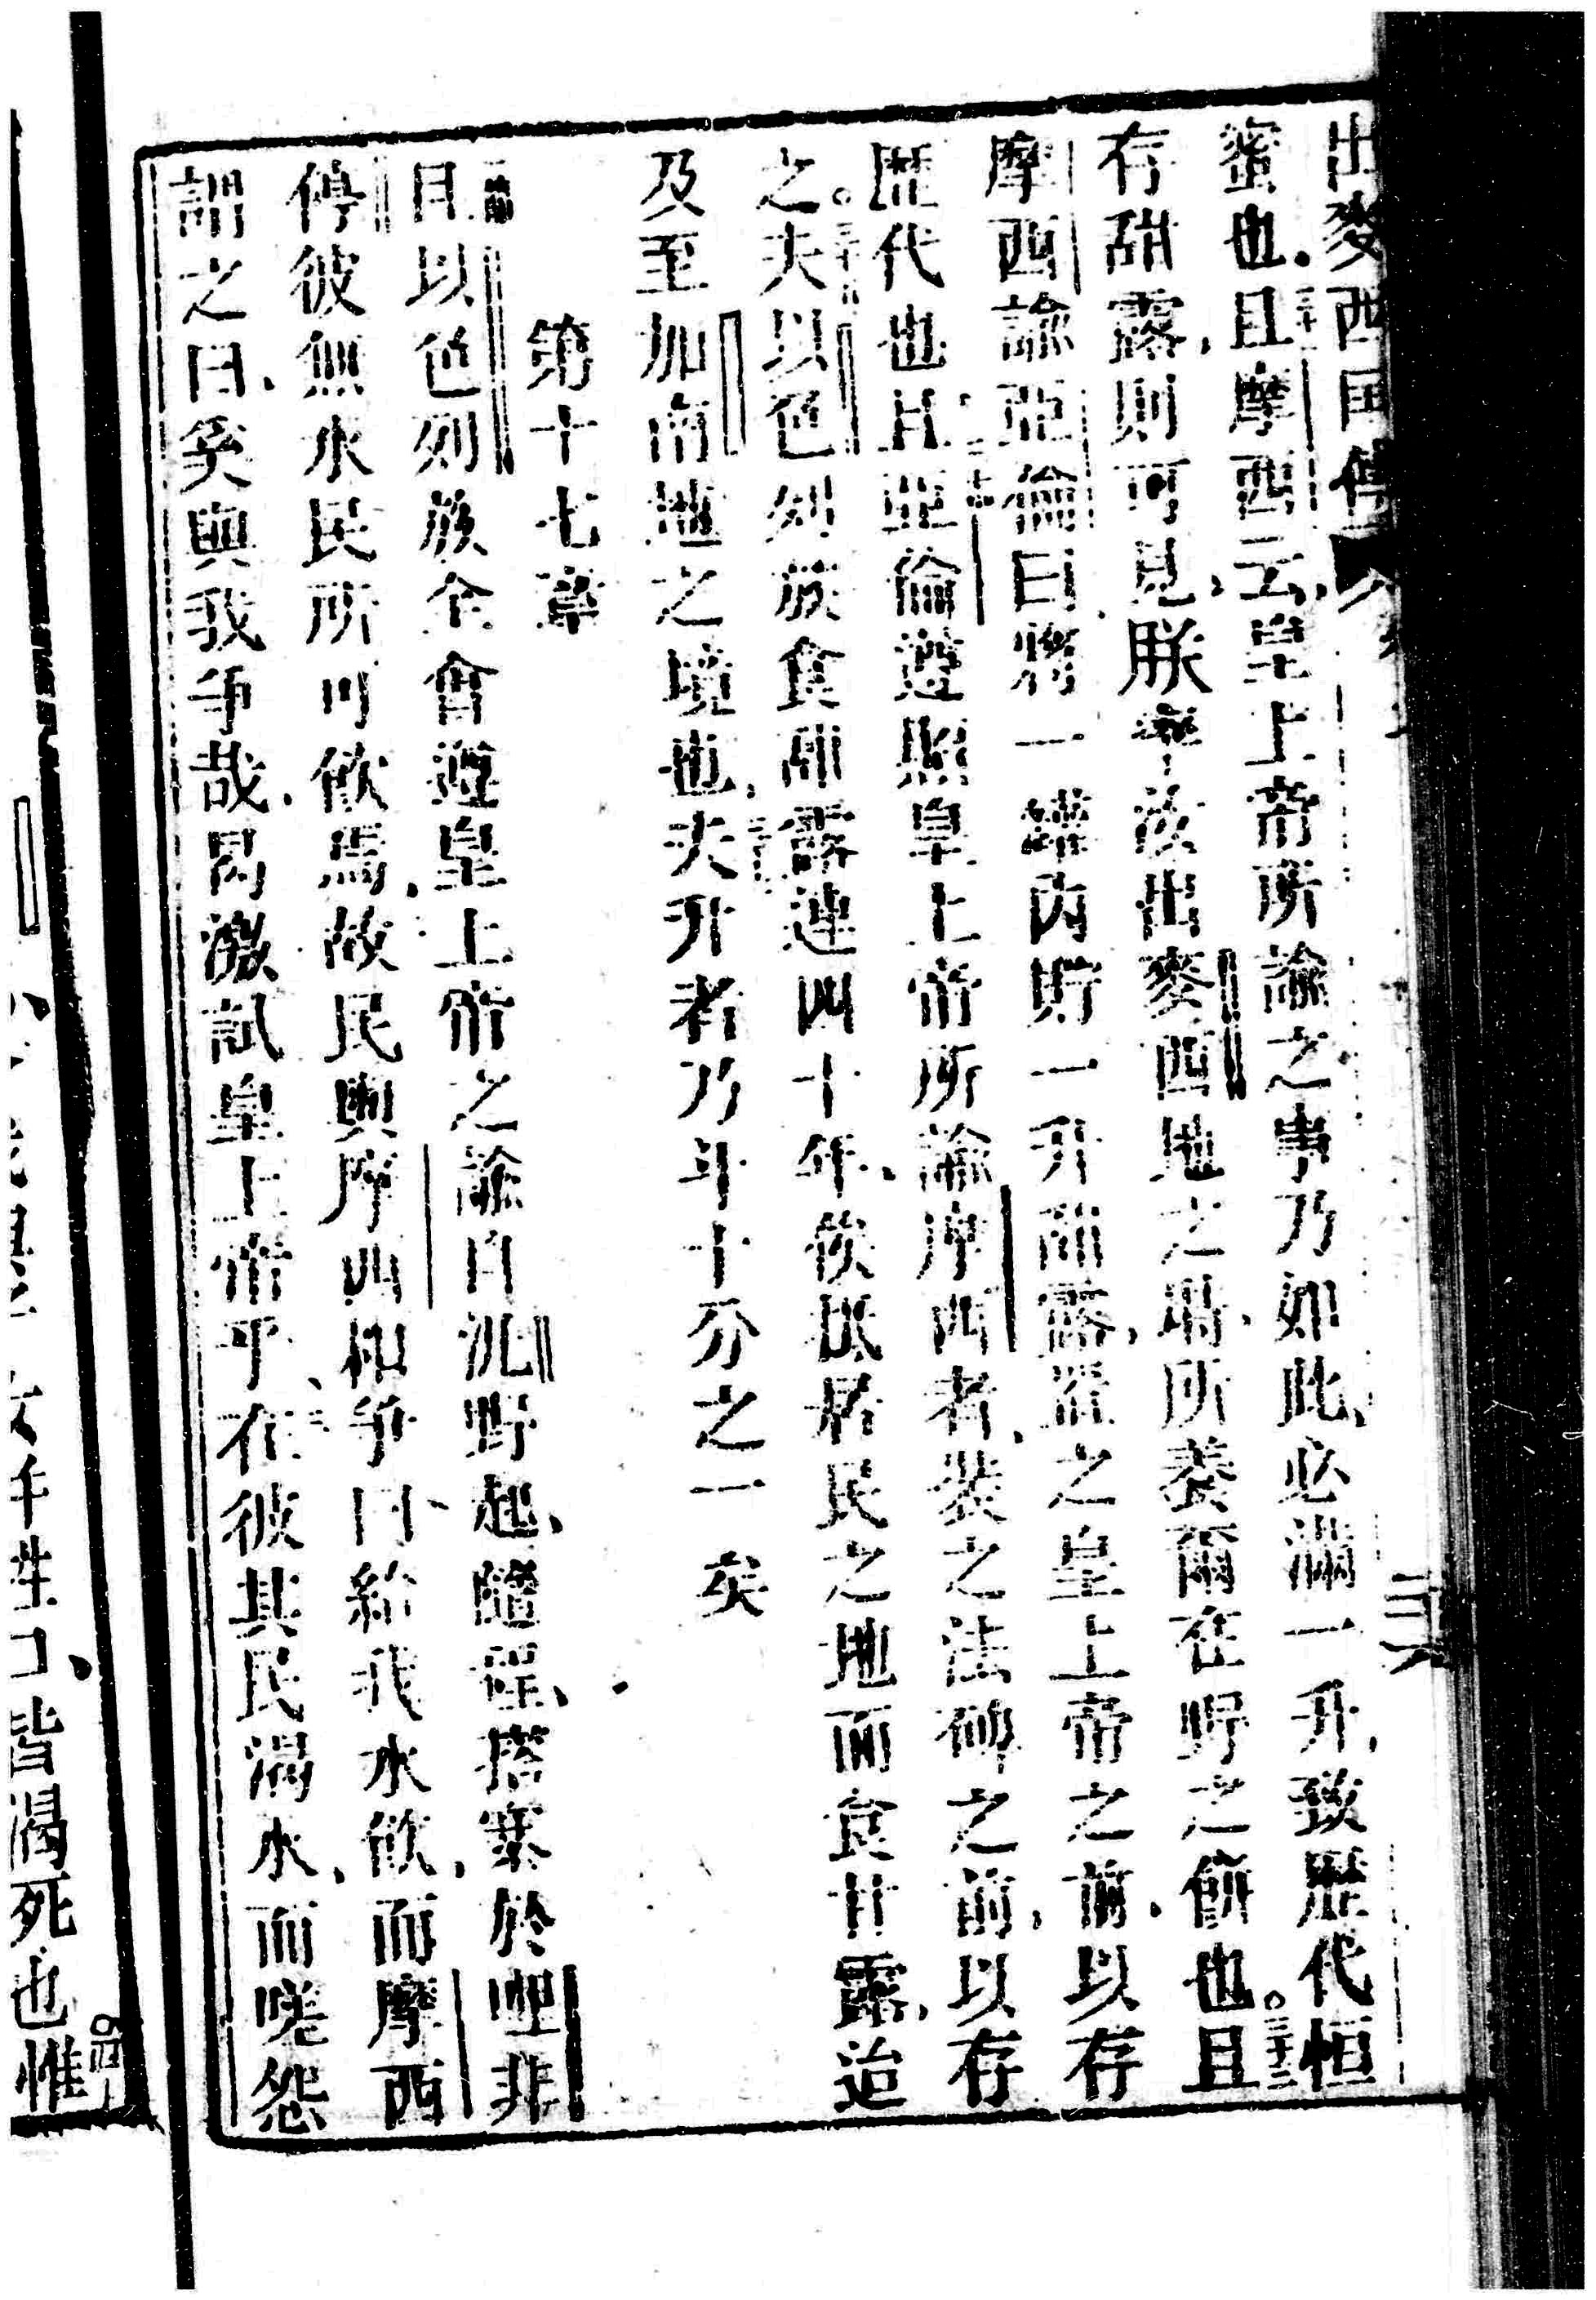 出麥西国傳
三
蜜也三十二且摩西云皇上帝所諭之事乃如此必滿一升致歷代恒
存甜露則可見朕率汝出麥西地之時所養爾在野之餅也三十三且
摩西諭亞倫曰將一罐內貯一升甜露置之皇上帝之前以存
歷代也三十四且亞倫遵照皇上帝所諭摩西者裝之法碑之前以存
之三十五夫以色列族食甜露連四十年俟抵居民之地而食甘露迨
及至加南地之境也三十六夫升者乃斗十分之一矣
第十七章
一且以色列族全會遵皇上帝之諭自汛野起隨程搭寨於哩非
停彼無水民所可飲焉二故民與摩西相爭曰給我水飲而摩西
謂之曰奚與我爭哉曷激試皇上帝乎三在彼其民渴水而嗟怨
年牲口皆渴死也四惟